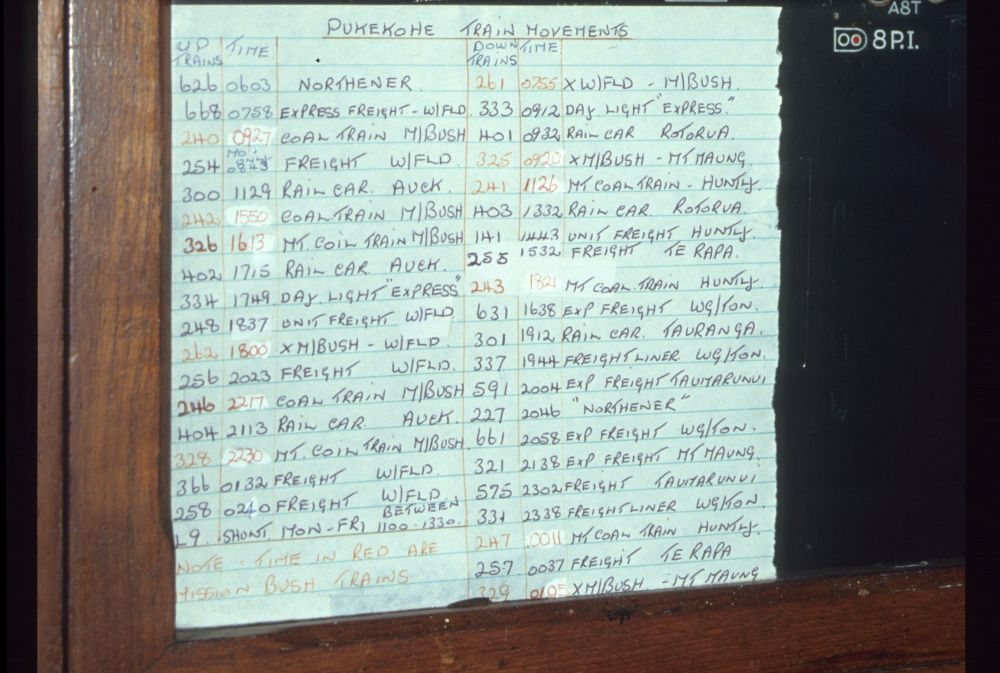 PUKEKOHE TRAIN MOVEMENTS
UP TRAINS TIME
626 0603 NORTHENER
668 0758 EXPRESS FREIGHT - W/FLD
240 0927 COAL TRAIN M/BUSH
254 FREIGHT W/FLD
300 1129 RAIL CAR. AUCK.
242 1550 COAL TRAIN M/BUSH
326 1613 MT. COIL TRAIN M/BUSH
402 1715 RAIL CAR AUCK.
334 1749 DAY LIGHT "EXPRESS"
248 1837 UNIT FREIGHT W/FLD
262 1800 XM/BUSH - W/FLD.
256 2023 FREIGHT W/FLD.
246 2217 COAL TRAIN M/BUSH
404 2113 RAIL CAR. AUCK.
328 2230 MT. COIL TRAIN M/BUSH
366 0132 FREIGHT W/FLD.
258 0240 FREIGHT W/FLD
L9. SHUNT. MON-FRI BETWEEN 1100-1330.
NOTE - TIME IN RED ARE
MISSION BUSH TRAINS
DOWN TRAINS TIME
261 0755 X W/FLD - M/BUSH.
333 0912 DAY LIGHT "EXPRESS."
401 0932 RAIL CAR ROTORUA.
325 0920 XM/BUSH - MT MAUNG
241 1126 MT COAL TRAIN - HUNTLY.
403 1332 RAIL CAR. ROTORUA.
141 1443 UNIT FREIGHT HUNTLY.
255 1532 FREIGHT TE RAPA.
243 MT COAL TRAIN HUNTLY.
631 1638 EXP FREIGHT WG/TON.
301 1912 RAIL CAR. TAURANGA.
337 1944 FREIGHTLINER WG/TON.
591 2004 EXP FREIGHT TAUMARUNUI
227 2046 "NORTHENER"
661 2058 EXP FREIGHT WG/TON.
321 2138 EXP FREIGHT MT MAUNG.
575 2302 FREIGHT TAUMARUNUI
331 2338 FREIGHTLINER WG/TON
247 0011 MT COAL TRAIN HUNTLY.
257 0037 FREIGHT TE RAPA
329 XM/BUSH - MT MAUNG
A8T
8 P.I.